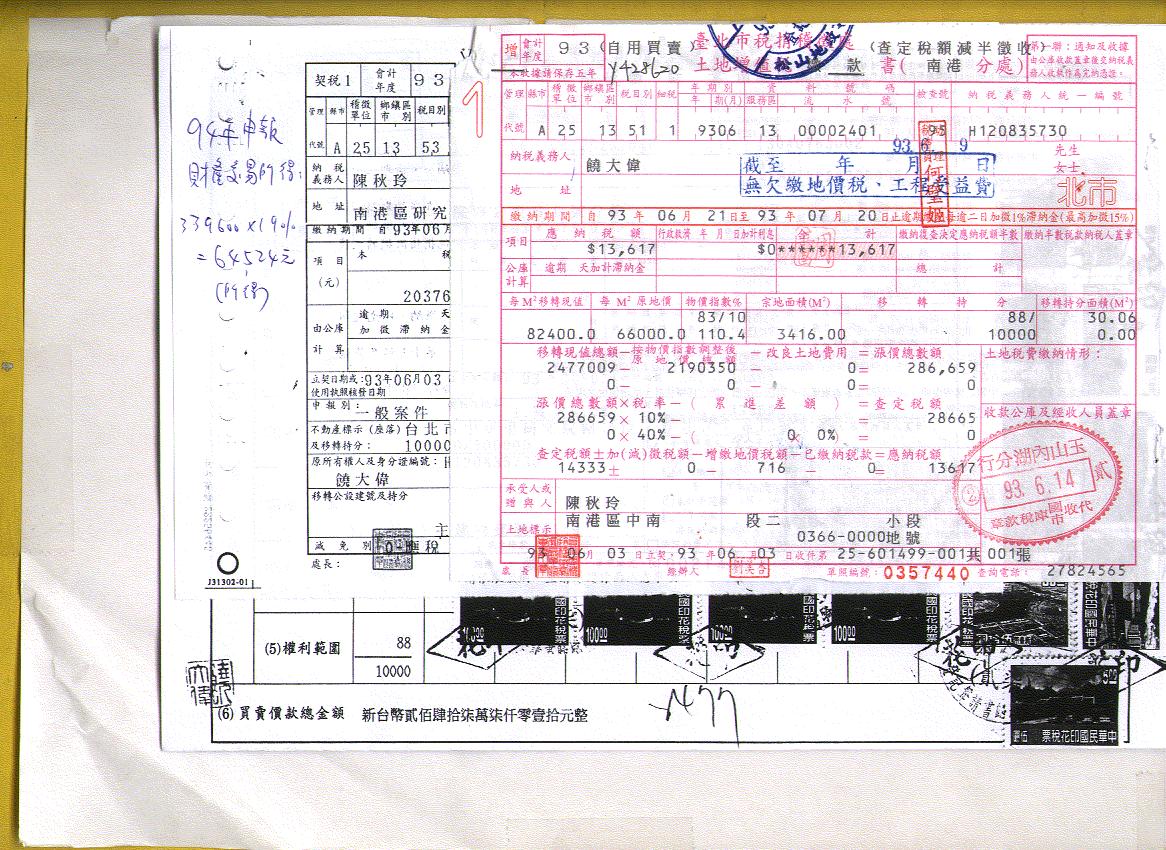 94年申報
財產交易所得:
339600×19%
=64524元
(所得)
契稅1 會計年度 93
管理代號 縣市 稽徵單位 鄉鎮區市別 稅目別
A 25 13 53
納稅義務人 陳秋玲
地址 南港區研究
繳納期間 自93年06月
項目(元) 本 稅
20376
由公庫計算 逾期 天加徵滯納金
立契日期或:93年06月03
使用執照核發日期
申報別: 一般案件
不動產標示(座落)台北市
及移轉持分: 10000
原所有權人及身分證編號: H
饒大偉
移轉公設建號及持分
減免別
處長:
J31302-01
1
增 會計年度 93 (自用買賣) 臺北市稅捐稽徵處 (查定稅額減半徵收)
本收據請保存五年 Y428620 土地增值 繳 款 書 ( 南港 分處)
松山地政
第一聯:通知及收據
由公庫收款蓋章後交納稅義
務人收執作為完納憑證。
管理代號 縣市 稽徵單位 鄉鎮區市別 稅目別 細稅 年期別年 期(月) 資料號碼 服務區 流水號 檢查號 納稅義務人統一編號
A 25 13 51 1 9306 13 00002401 95 H120835730
93.6.9
納稅義務人 饒大偉 先生
女士
截至 年 月 日
無欠繳地價稅、工程受益費
地址
北市
繳納期間 自 93 年 06 月 21日至 93 年 07 月 20 日止逾期繳納每逾二日加徵1%滯納金(最高加徵15%)
項目 應納稅額 行政救濟 年 月 日加計利息 合計 繳納復查決定應納稅額半數 繳納半數稅款納稅人蓋章
$13,617 $0******13,617
公庫計算 逾期 天加計滯納金 總計
每M²移轉現值 每M²原地價 物價指數% 宗地面積(M²) 移轉持分 移轉持分面積(M²)
83/10 88/ 30.06
82400.0 66000.0 110.4 3416.00 10000 0.00
移轉現值總額-按物價指數調整後原地價總額-改良土地費用=漲價總數額 土地稅費繳納情形:
2477009- 2190350 - 0= 286,659
0- 0 - 0= 0
漲價總數額×稅率-(累進差額)=查定稅額
286659×10%- 28665
0×40%-( 0× 0%)= 0
收款公庫及經收人員蓋章
查定稅額±加(減)徵稅額-增繳地價稅額-已繳納稅款=應納稅額
14333± 0- 716 - 0= 13617
玉山內湖分行
93.6.14
貳
代收國市庫稅款章
承受人或贈與人 陳秋玲
土地標示 南港區中南 段二 小段
0366-0000地號
93年06月03日立契:93年06月03日收件第25-601499-001共001張
處長 經辦人 單照編號:0357440 查詢電話:27824565
(5)權利範圍 88
10000
(6)買賣價款總金額 新台幣貳佰肆拾柒萬柒仟零壹拾元整
100.00
100.00
100.00
100.00
5.00
中華民國印花稅票